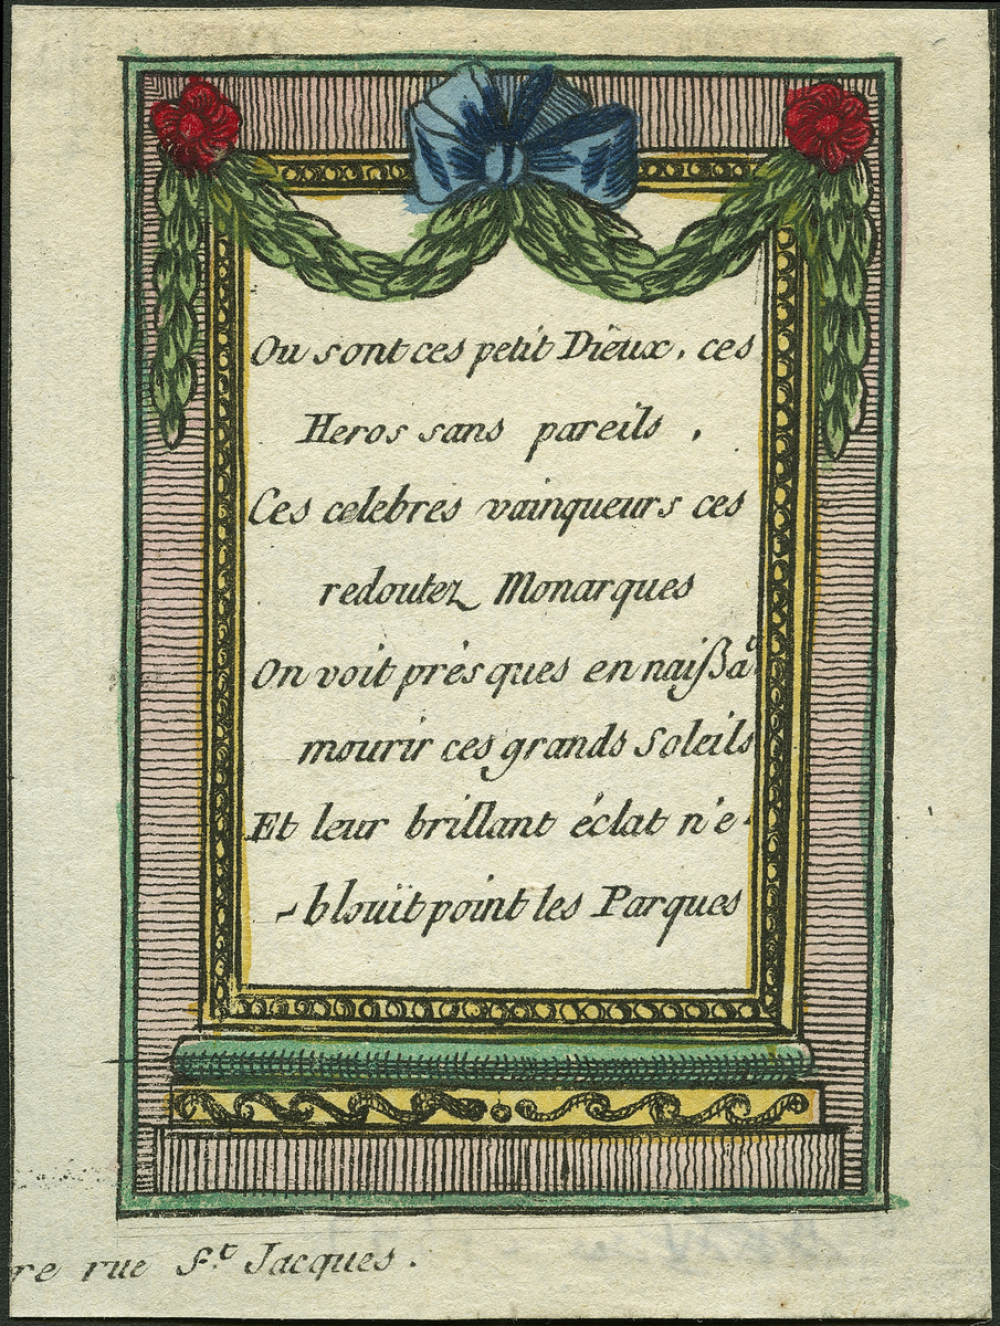 Ou sont ces petit Dieux, ces
Heros sans pareils,
Ces celebres vainqueurs ces
redoutez Monarques
On voit présques en naißãt
mourir ces grands Soleils
Et leur brillant éclat n'é-
-blouït point les Parques
re rue St. Jacques.